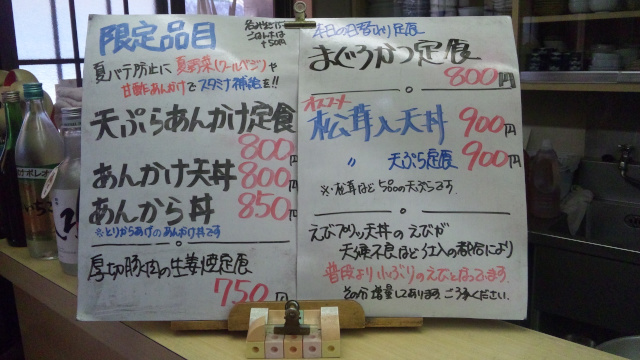 限定品目
各丼定に
ごはん大は
+50円
夏バテ防止に夏野菜(クールベジ)や
甘酢あんかけでスタミナ補給を!!
天ぷらあんかけ定食
800円
あんかけ天丼 800円
あんから丼 850円
※とりからあげのあんかけ丼です
厚切豚肉の生姜焼定食
750円
本日の日替わり定食
まぐろかつ定食
800円
オススメ
松茸入天丼 900円
〃 天ぷら定食 900円
※松茸ほど5品の天ぷらです
えびプリッ天丼のえびが
天候不良ほど仕入の都合により
普段より小ぶりのえびとなってます。
その分増量してあります ご了承ください。